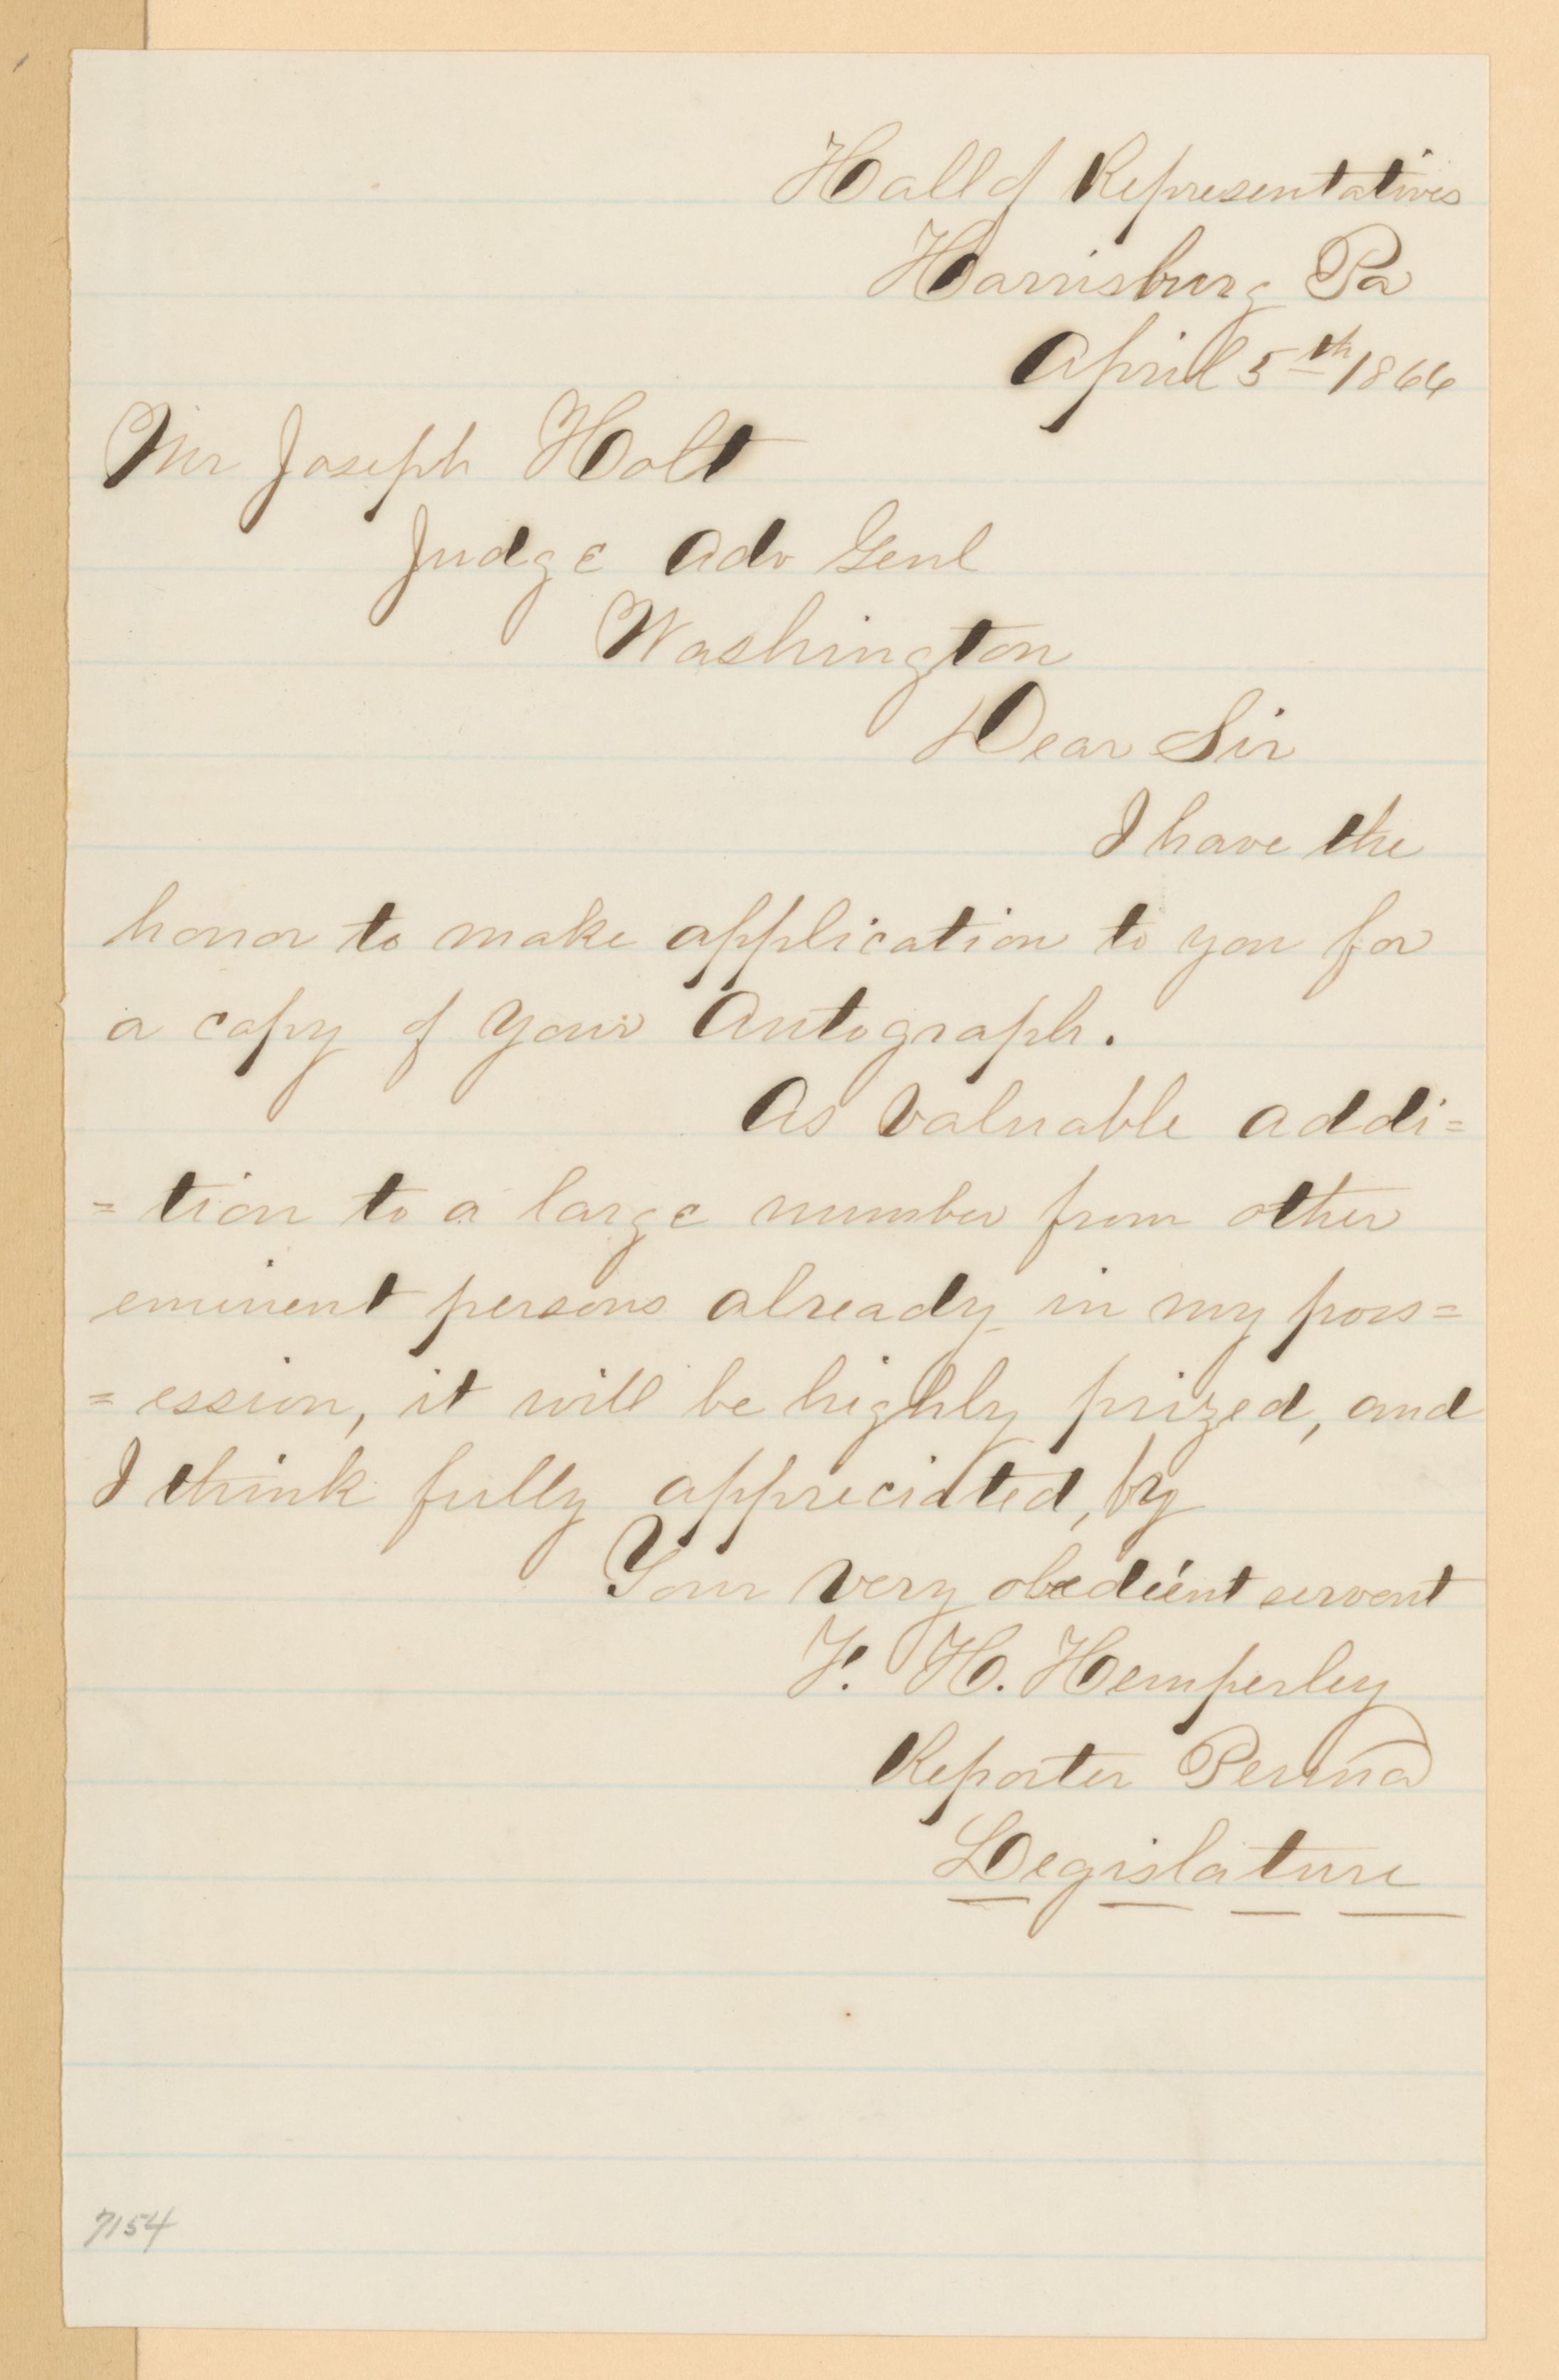 Hall of Representatives
Harrisburg Pa
April 5th 1866
Mr Joseph Holt
Judge Adv Genl
Washington
Dear Sir
I have the
honor to make application to you for
a copy of your Autograph.
As valuable addi=
=tion to a large number from other
eminent persons already in my poss=
=ession, it will be highly prized, and
I think fully appreciated, by
Your very obedient servent
F. H. Hemperley
Reporter Penna
Legislature
7154